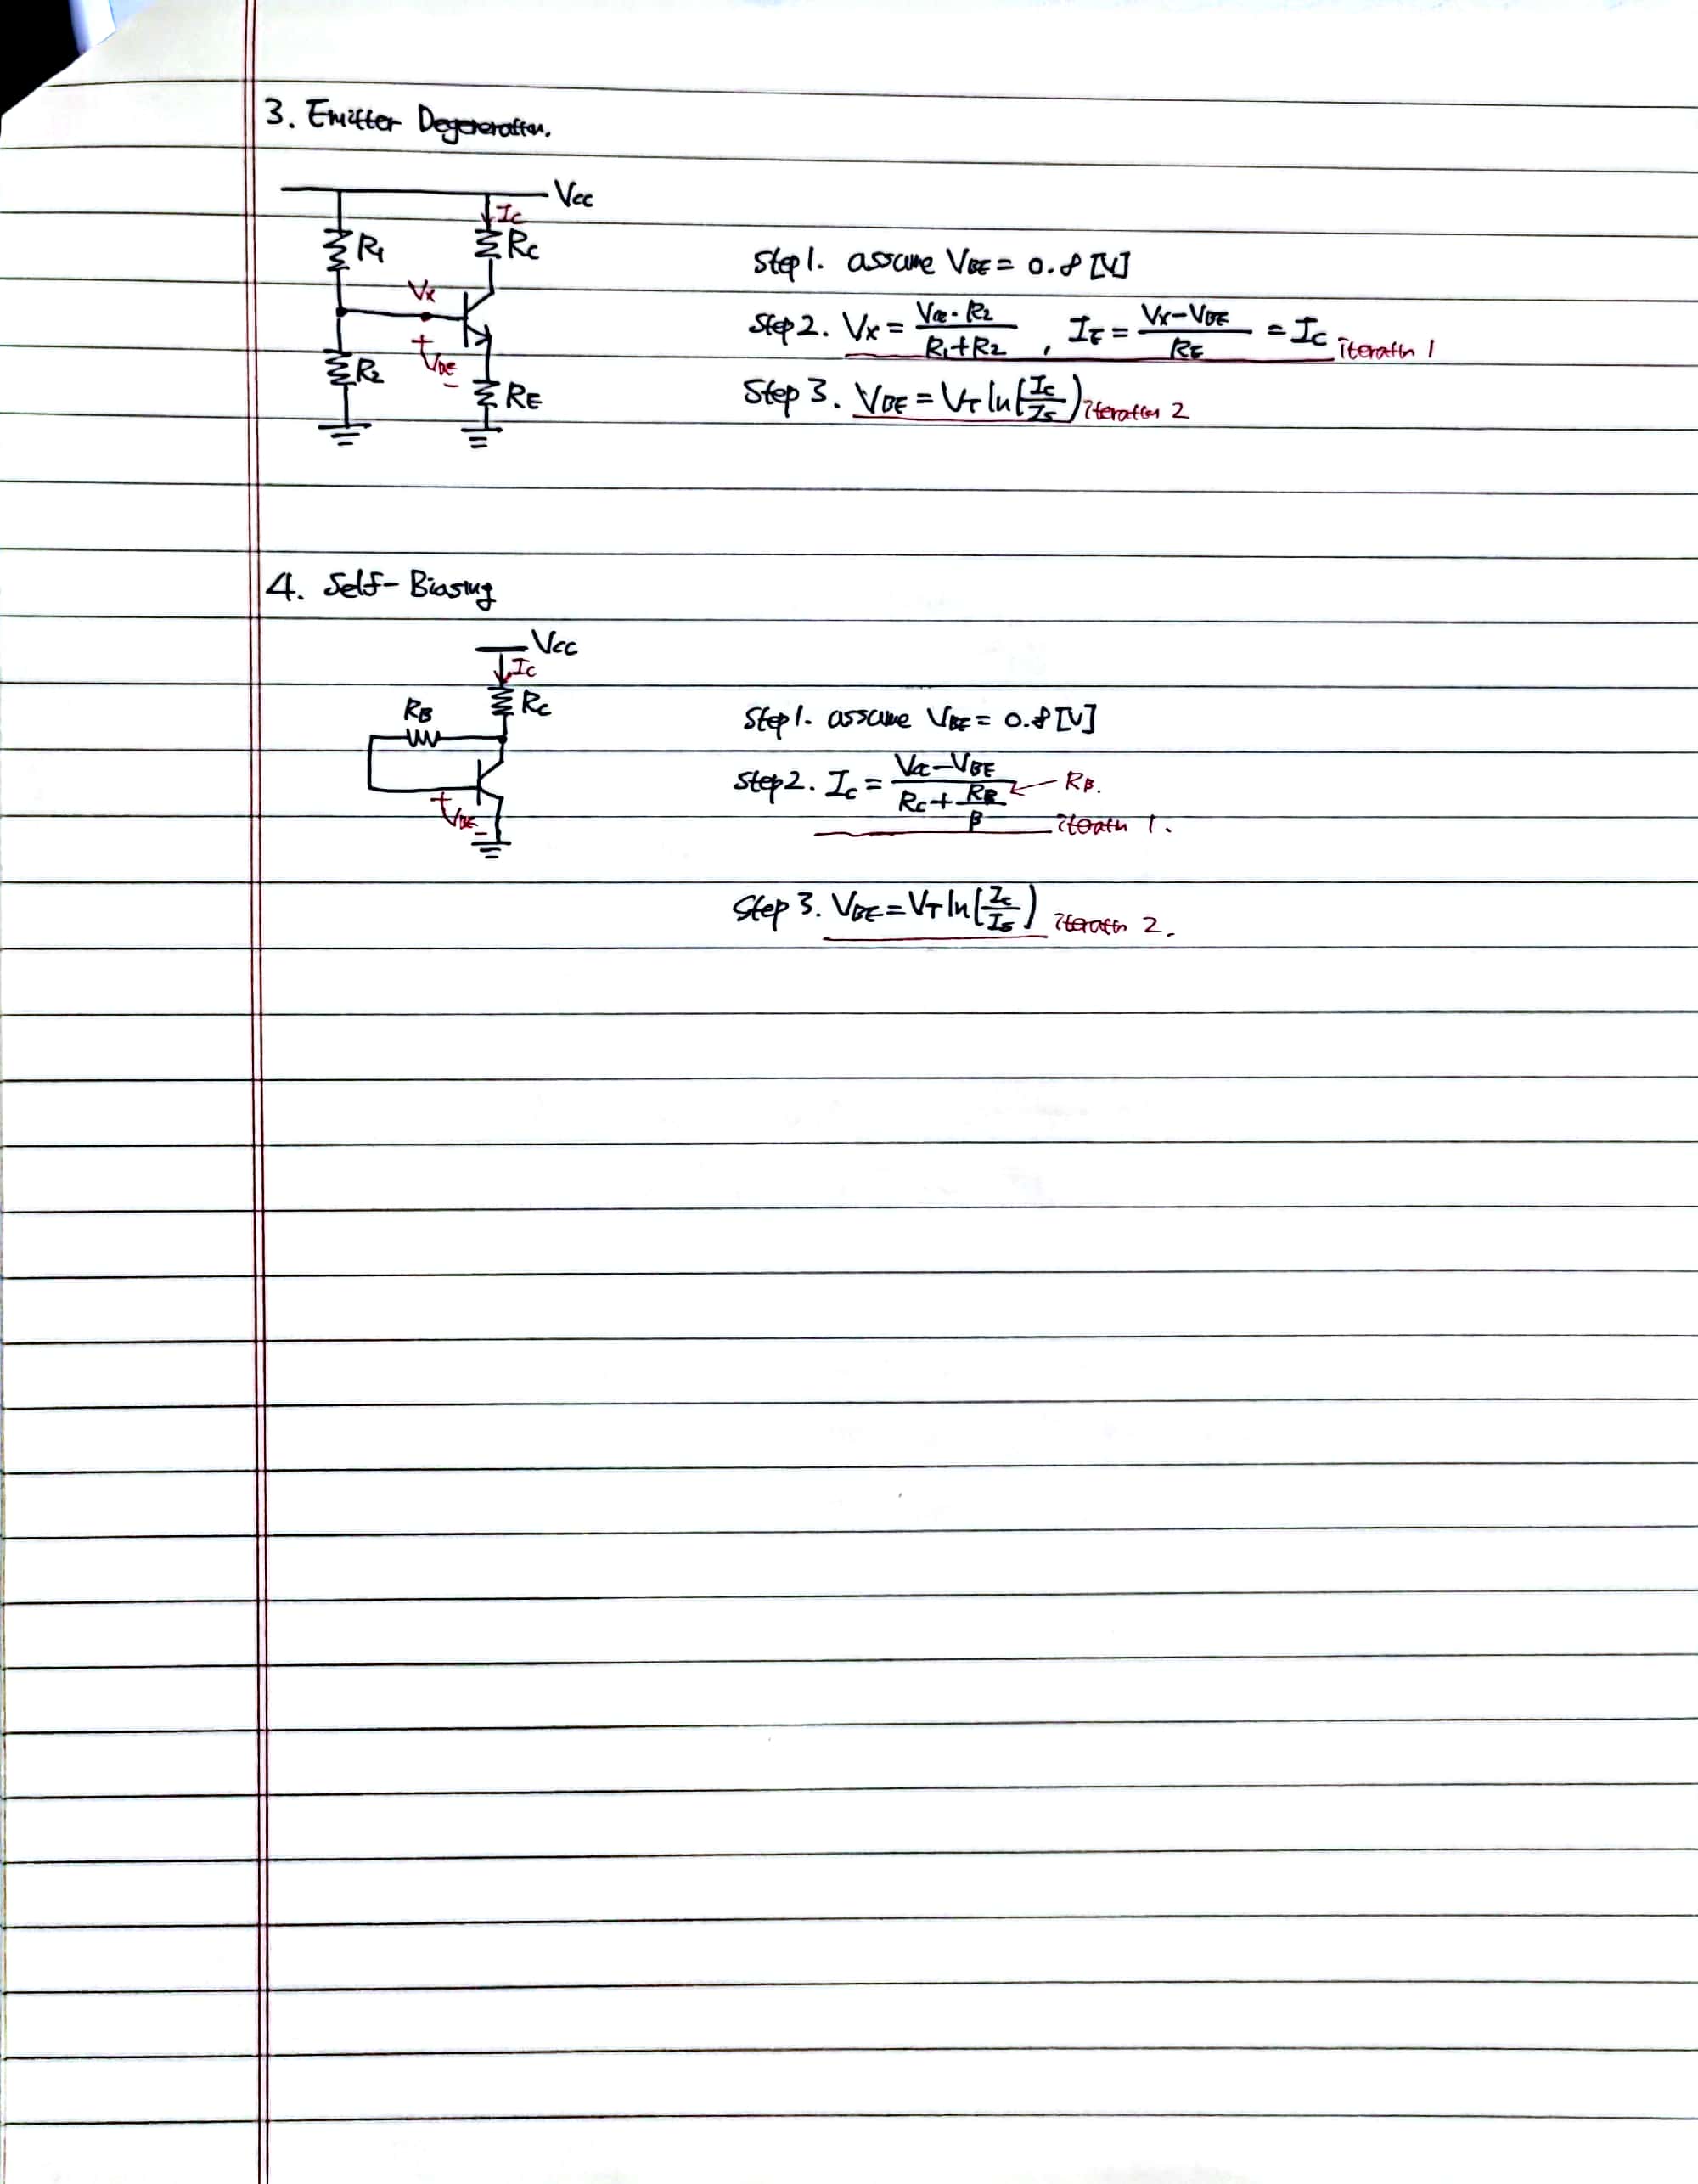 3. Emitter Degeneration.
Vcc
Ic
R1
Rc
Vx
+
VBE
-
R2
RE
Step 1. assume VBE = 0.8 [V]
Step 2. Vx = Vcc · R2 / R1+R2 , IE = Vx-VBE / RE = Ic iteration 1
Step 3. VBE = VT ln(Ic/Is) iteration 2
4. Self-Biasing
Vcc
Ic
RB
Rc
+
VBE
-
Step 1. assume VBE = 0.8 [V]
Step 2. Ic = Vcc-VBE / Rc + RB/β ← RB.
iteration 1.
Step 3. VBE = VT ln(Ic/Is) iteration 2.